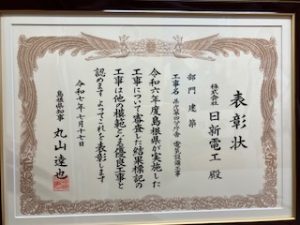 表彰状
株式会社 日新電工 殿
部門 建築
工事名 県庁第四分庁舎 電気設備工事
令和六年度島根県が実施した
工事について審査した結果標記の
工事は他の模範となる優良工事と
認めます よってこれを表彰します
令和七年七月十七日
島根県知事 丸山達也